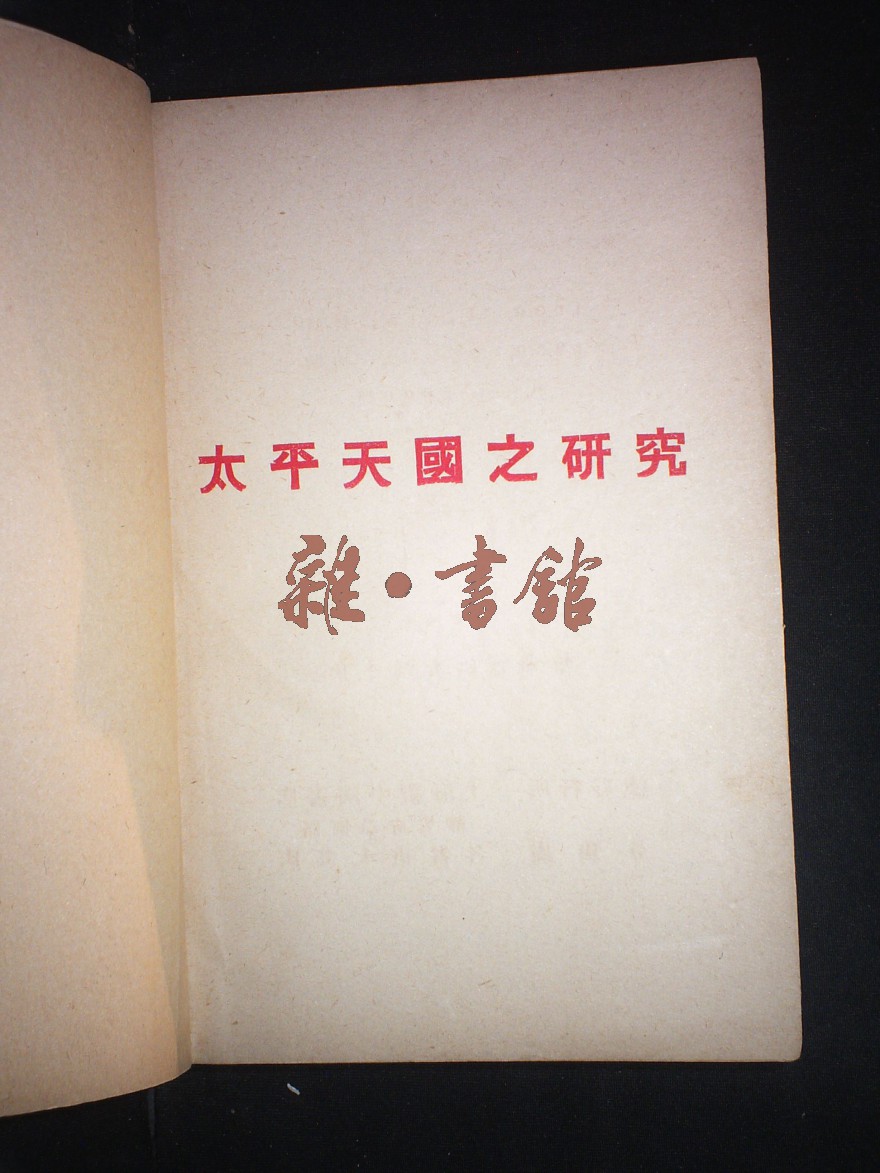 太平天國之研究
雜·書館